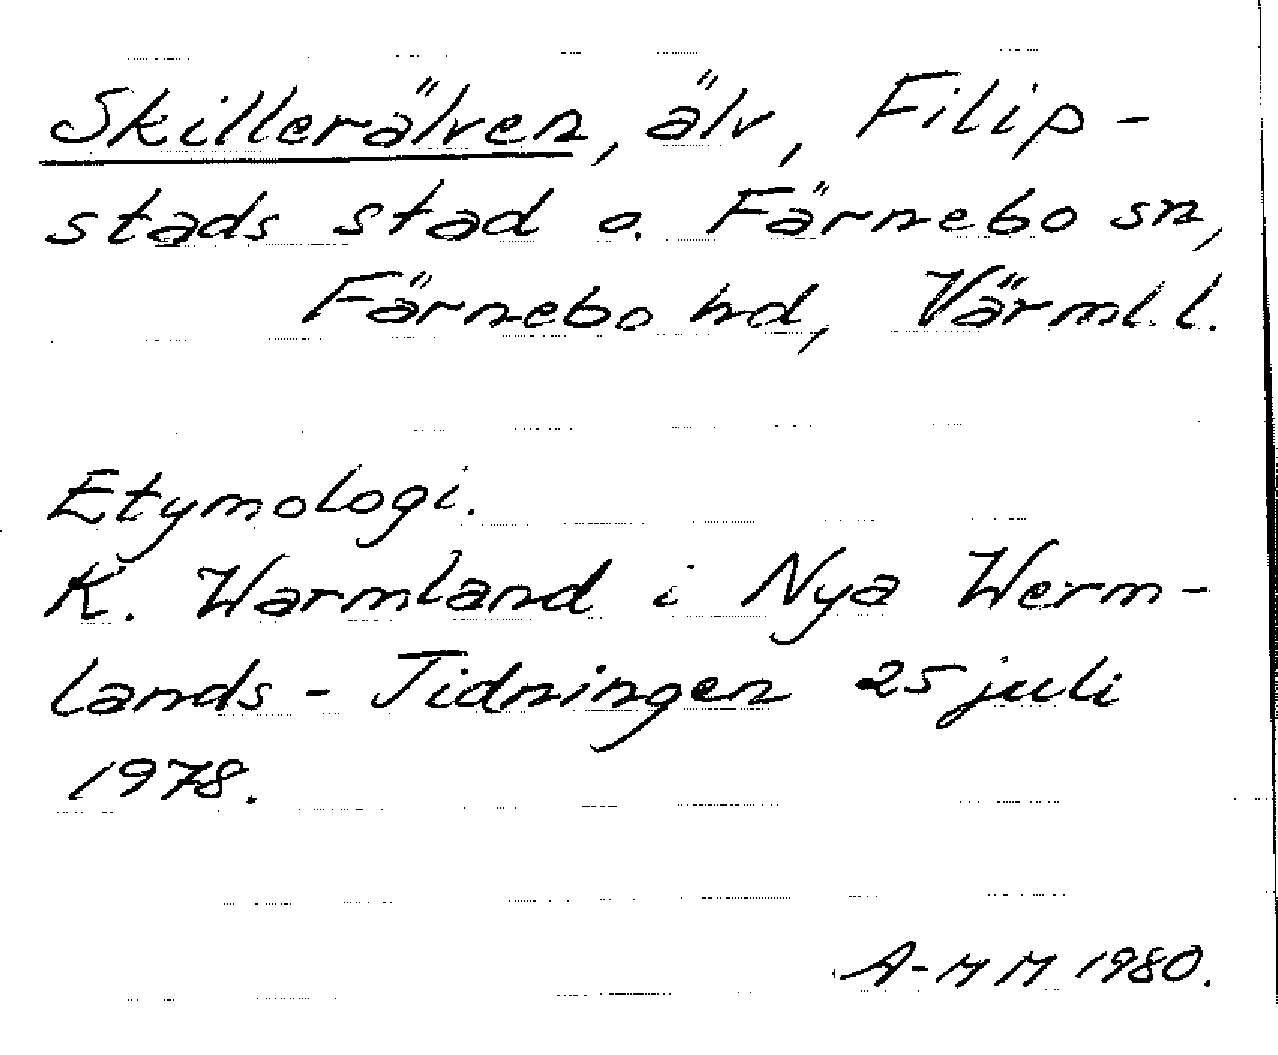 Skillerälven, älv, Filip-
stads stad o. Färnebo sn,
Färnebo hd, Värml. l.
Etymologi.
K. Warmland i Nya Werm-
lands-Tidningen 25 juli
1978.
A-MM 1980.